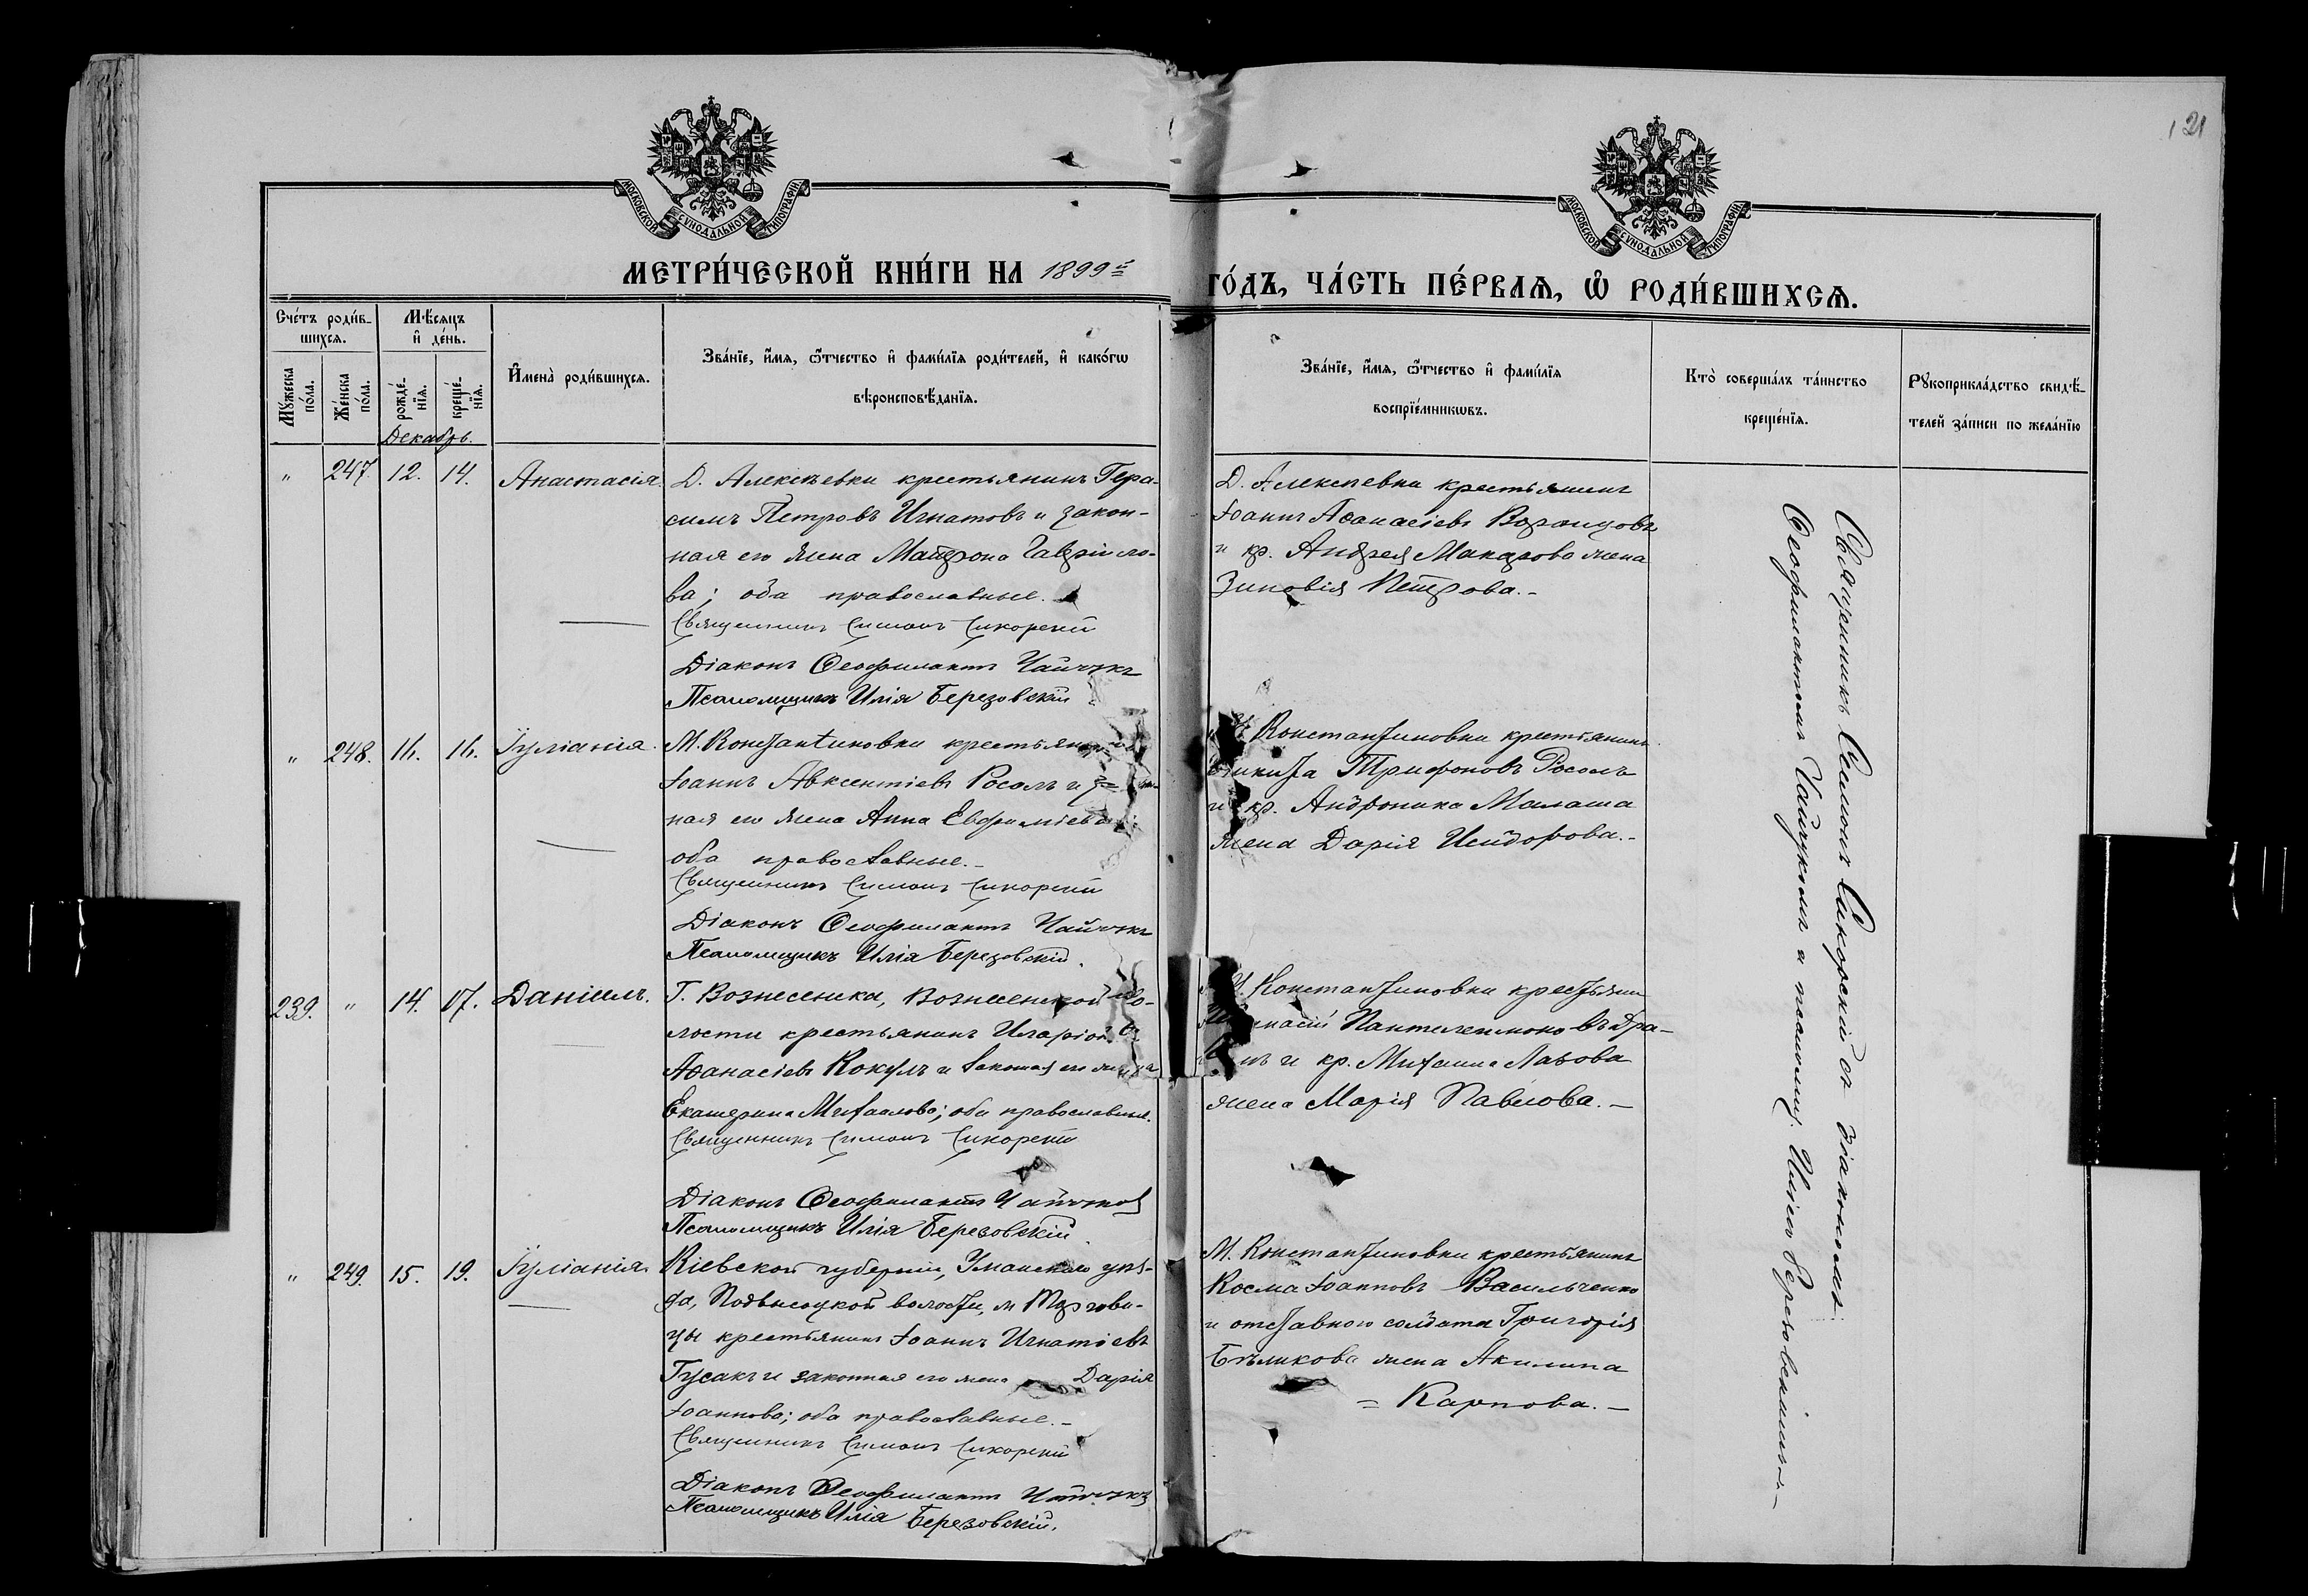 121
МОСКОВСКОЙ СѴНОДАЛЬНОЙ ТИПОГРАФІИ
МОСКОВСКОЙ СѴНОДАЛЬНОЙ ТИПОГРАФІИ
МЕТРИ́ЧЕСКОЙ КНИ́ГИ НА 1899й
ГО́ДЪ, ЧА́СТЬ ПЕ́РВАѦ, Ѡ РОДИ́ВШИХСѦ.
Сче́тъ роди́в-
шихсѧ.
Мѣ́сѧцъ
и҆ де́нь.
Мꙋ́жеска
по́ла.
Же́нска
по́ла.
рожде́-
нїѧ.
креще́-
нїѧ.
Декабрь.
И҆мена̀ роди́вшихсѧ.
Зва́нїе, и҆́мѧ, ѻ҆́тчество и҆ фами́лїѧ роди́телей, и҆ како́гѡ
вѣроисповѣ́данїѧ.
Зва́нїе, и҆́мѧ, ѻ҆́тчество и҆ фами́лїѧ
воспрїе́мникѡвъ.
Кто̀ соверша́лъ та́инство
креще́нїѧ.
Рꙋкоприкла́дство свидѣ́-
телей за́писи по жела́нїю
" 247. 12. 14. Анастасія.
Д. Алексѣевки крестьянинъ Гера-
симъ Петровъ Игнатовъ и закон-
ная его жена Матрона Гавріило-
ва; оба православные.
Священникъ Симонъ Сикорскій
Діаконъ Ѳеофилактъ Чайчукъ
Псаломщикъ Илія Березовскій
Д. Алексѣевки крестьянинъ
Іоаннъ Аѳанасіевъ Воронцовъ
и кр. Андрея Макарова жена
Зиновія Петрова.-
" 248. 16. 16. Іуліанія.
М. Константиновки крестьянинъ
Іоаннъ Авксентіевъ Росолъ и
ная его жена Анна Евфиміева;
оба православные.-
Священникъ Симонъ Сикорскій
Діаконъ Ѳеофилактъ Чайчукъ
Псаломщикъ Илія Березовскій.
Константиновки крестьянинъ
Никита Трифоновъ Росолъ
и кр. Андроника Малаша
жена Дарія Исидорова.-
239. " 14. 17. Даніилъ.
Г. Вознесенска, Вознесенской во-
лости крестьянинъ Иларіонъ
Аѳанасіевъ Кокулъ и законная его жена
Екатерина Михаилова; оба православные.
Священникъ Симонъ Сикорскій
Діаконъ Ѳеофилактъ Чайчукъ
Псаломщикъ Илія Березовскій.
М. Константиновки крестьянин
Пантелеимоновъ Дра-
и кр. Михаила Лавова
жена Марія Павлова.-
" 249. 15. 19. Іуліанія
Кіевской губерніи, Уманскаго уѣз-
да, Подвысоцкой волости, м Торгови-
цы крестьянинъ Іоаннъ Игнатіевъ
Гусакъ и законная его жена Дарія
Іоаннова; оба православные.-
Священникъ Симонъ Сикорскій
Діаконъ Ѳеофилактъ Чайчукъ
Псаломщикъ Илія Березовскій.
М. Константиновки крестьянинъ
Косма Іоанновъ Васильченко
и отставного солдата Григорія
Бѣликова жена Акилина
= Карпова.-
Священникъ Симонъ Сикорскій съ діакономъ
Ѳеофилактомъ Чайчукомъ и псаломщ. Иліею Березовскимъ.-